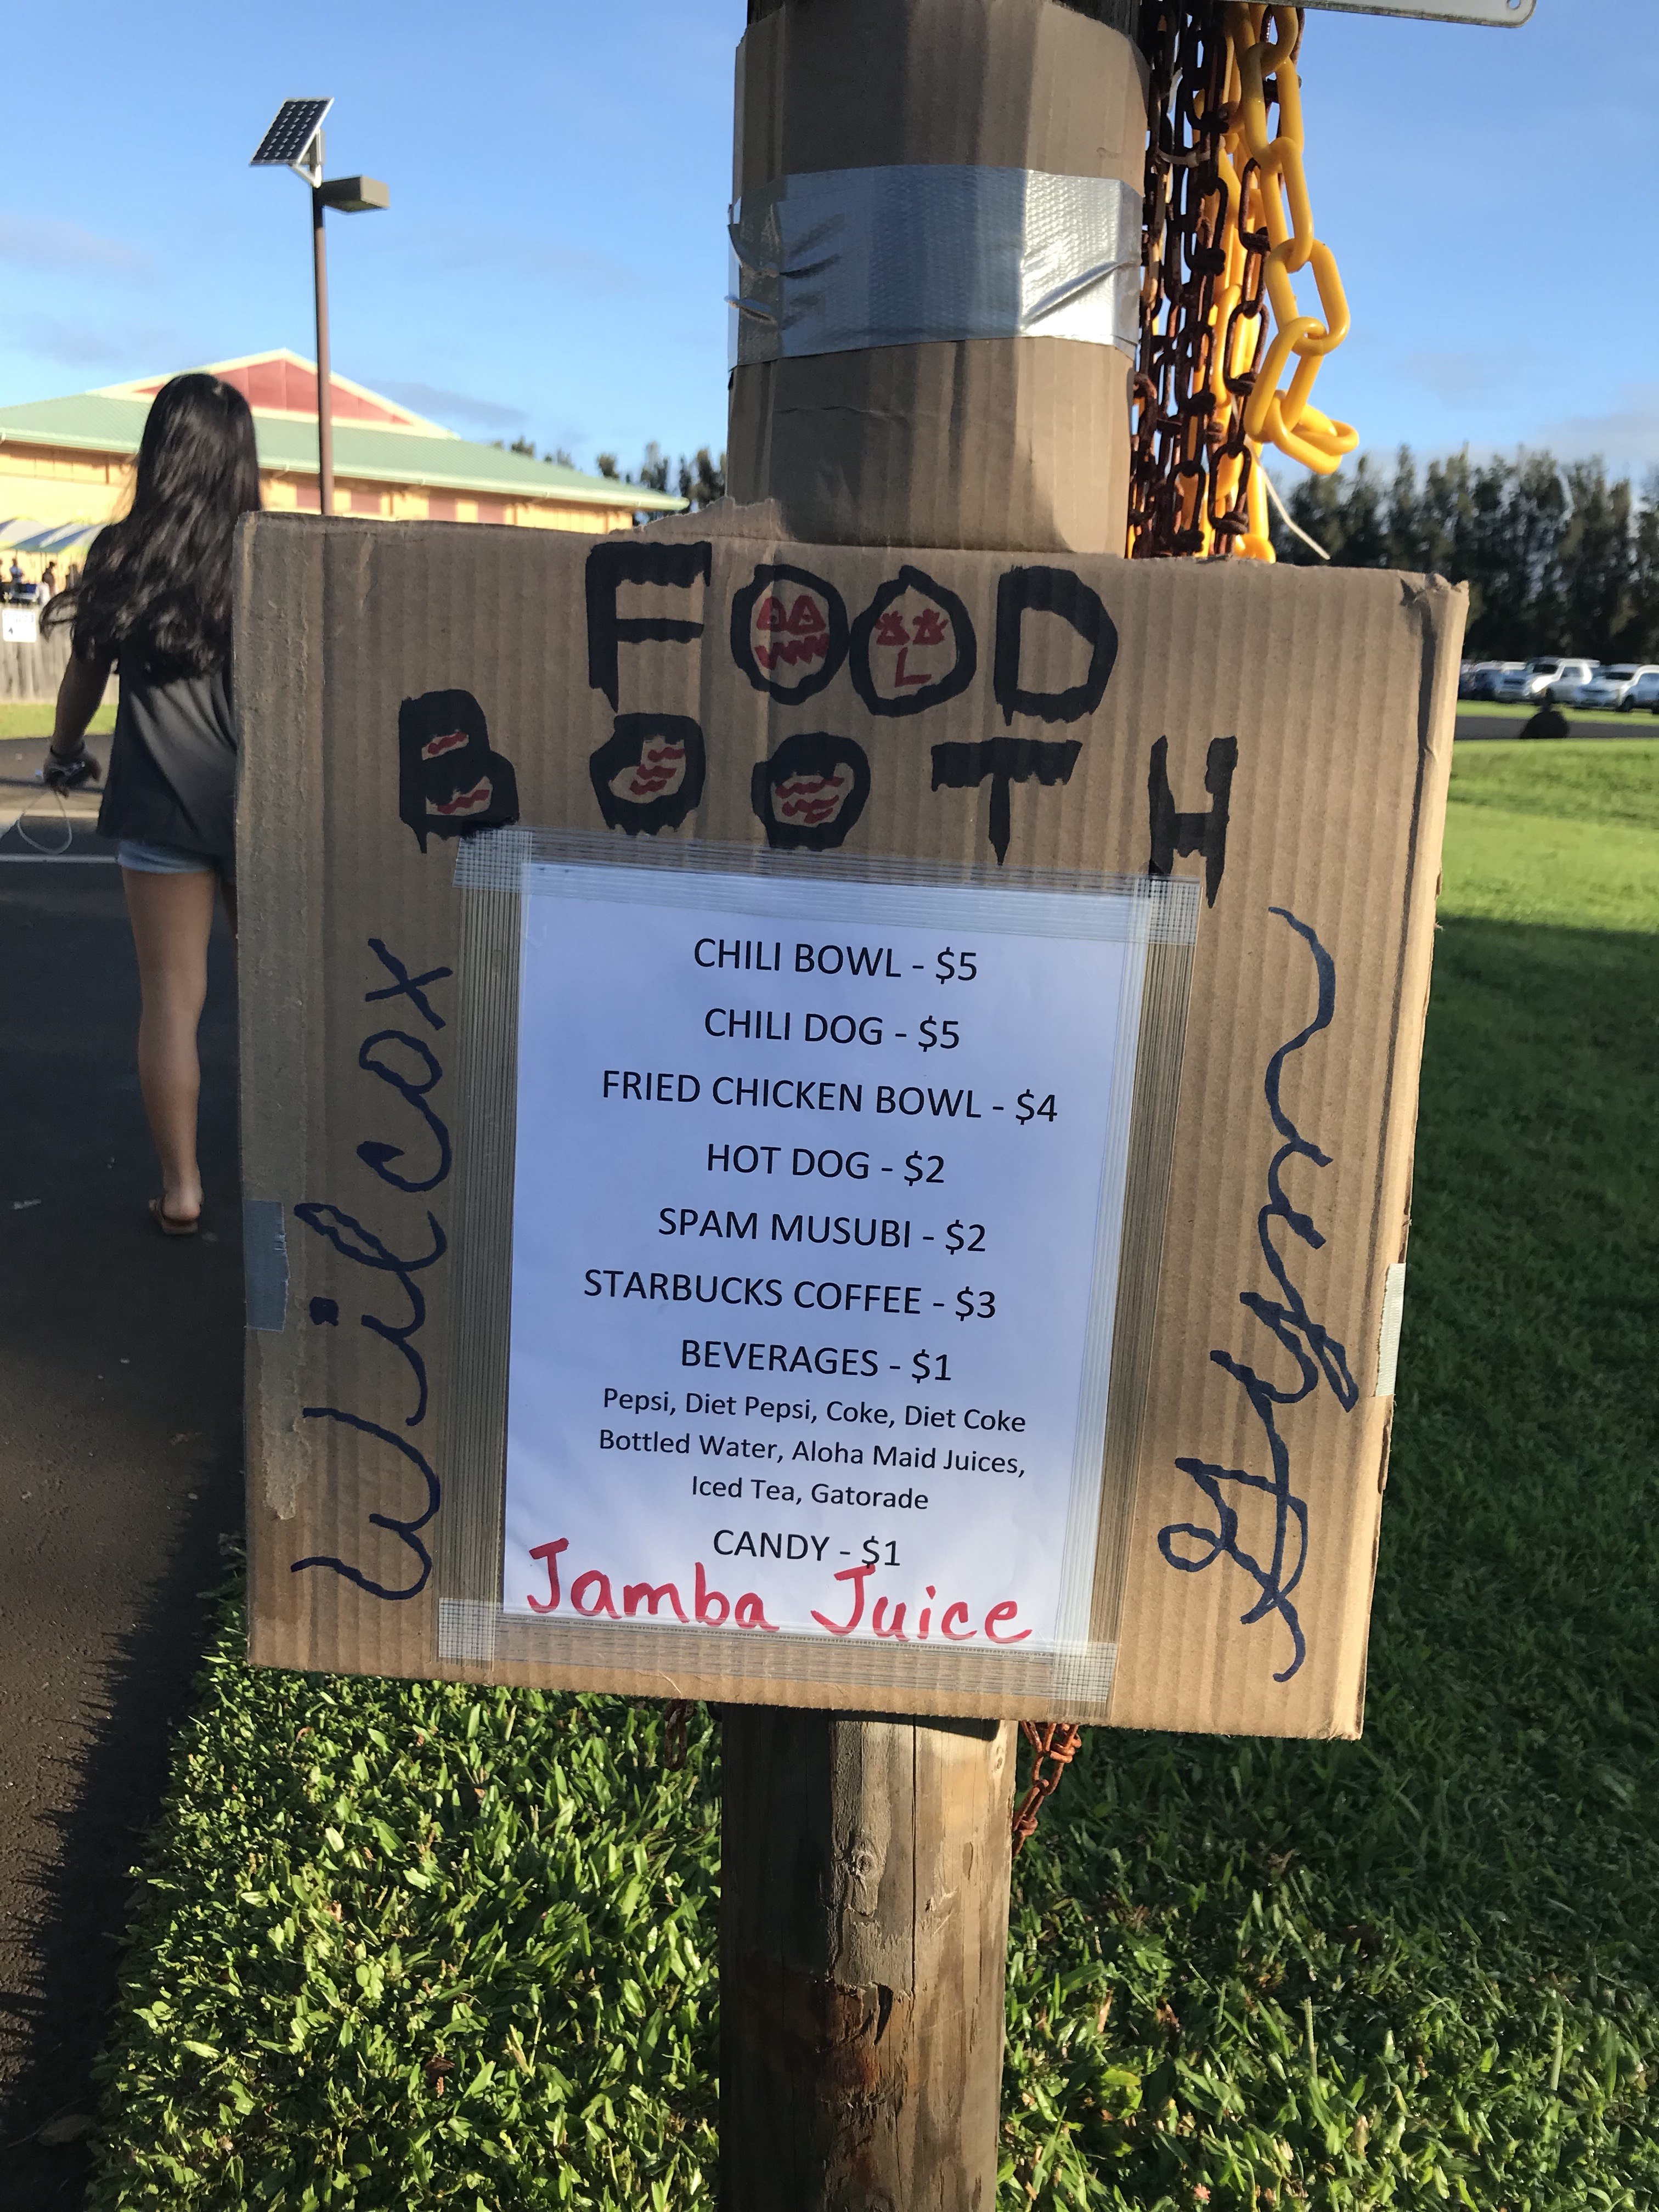 FOOD
BOOTH
Wilcox
Gym
CHILI BOWL - $5
CHILI DOG - $5
FRIED CHICKEN BOWL - $4
HOT DOG - $2
SPAM MUSUBI - $2
STARBUCKS COFFEE - $3
BEVERAGES - $1
Pepsi, Diet Pepsi, Coke, Diet Coke
Bottled Water, Aloha Maid Juices,
Iced Tea, Gatorade
CANDY - $1
Jamba Juice